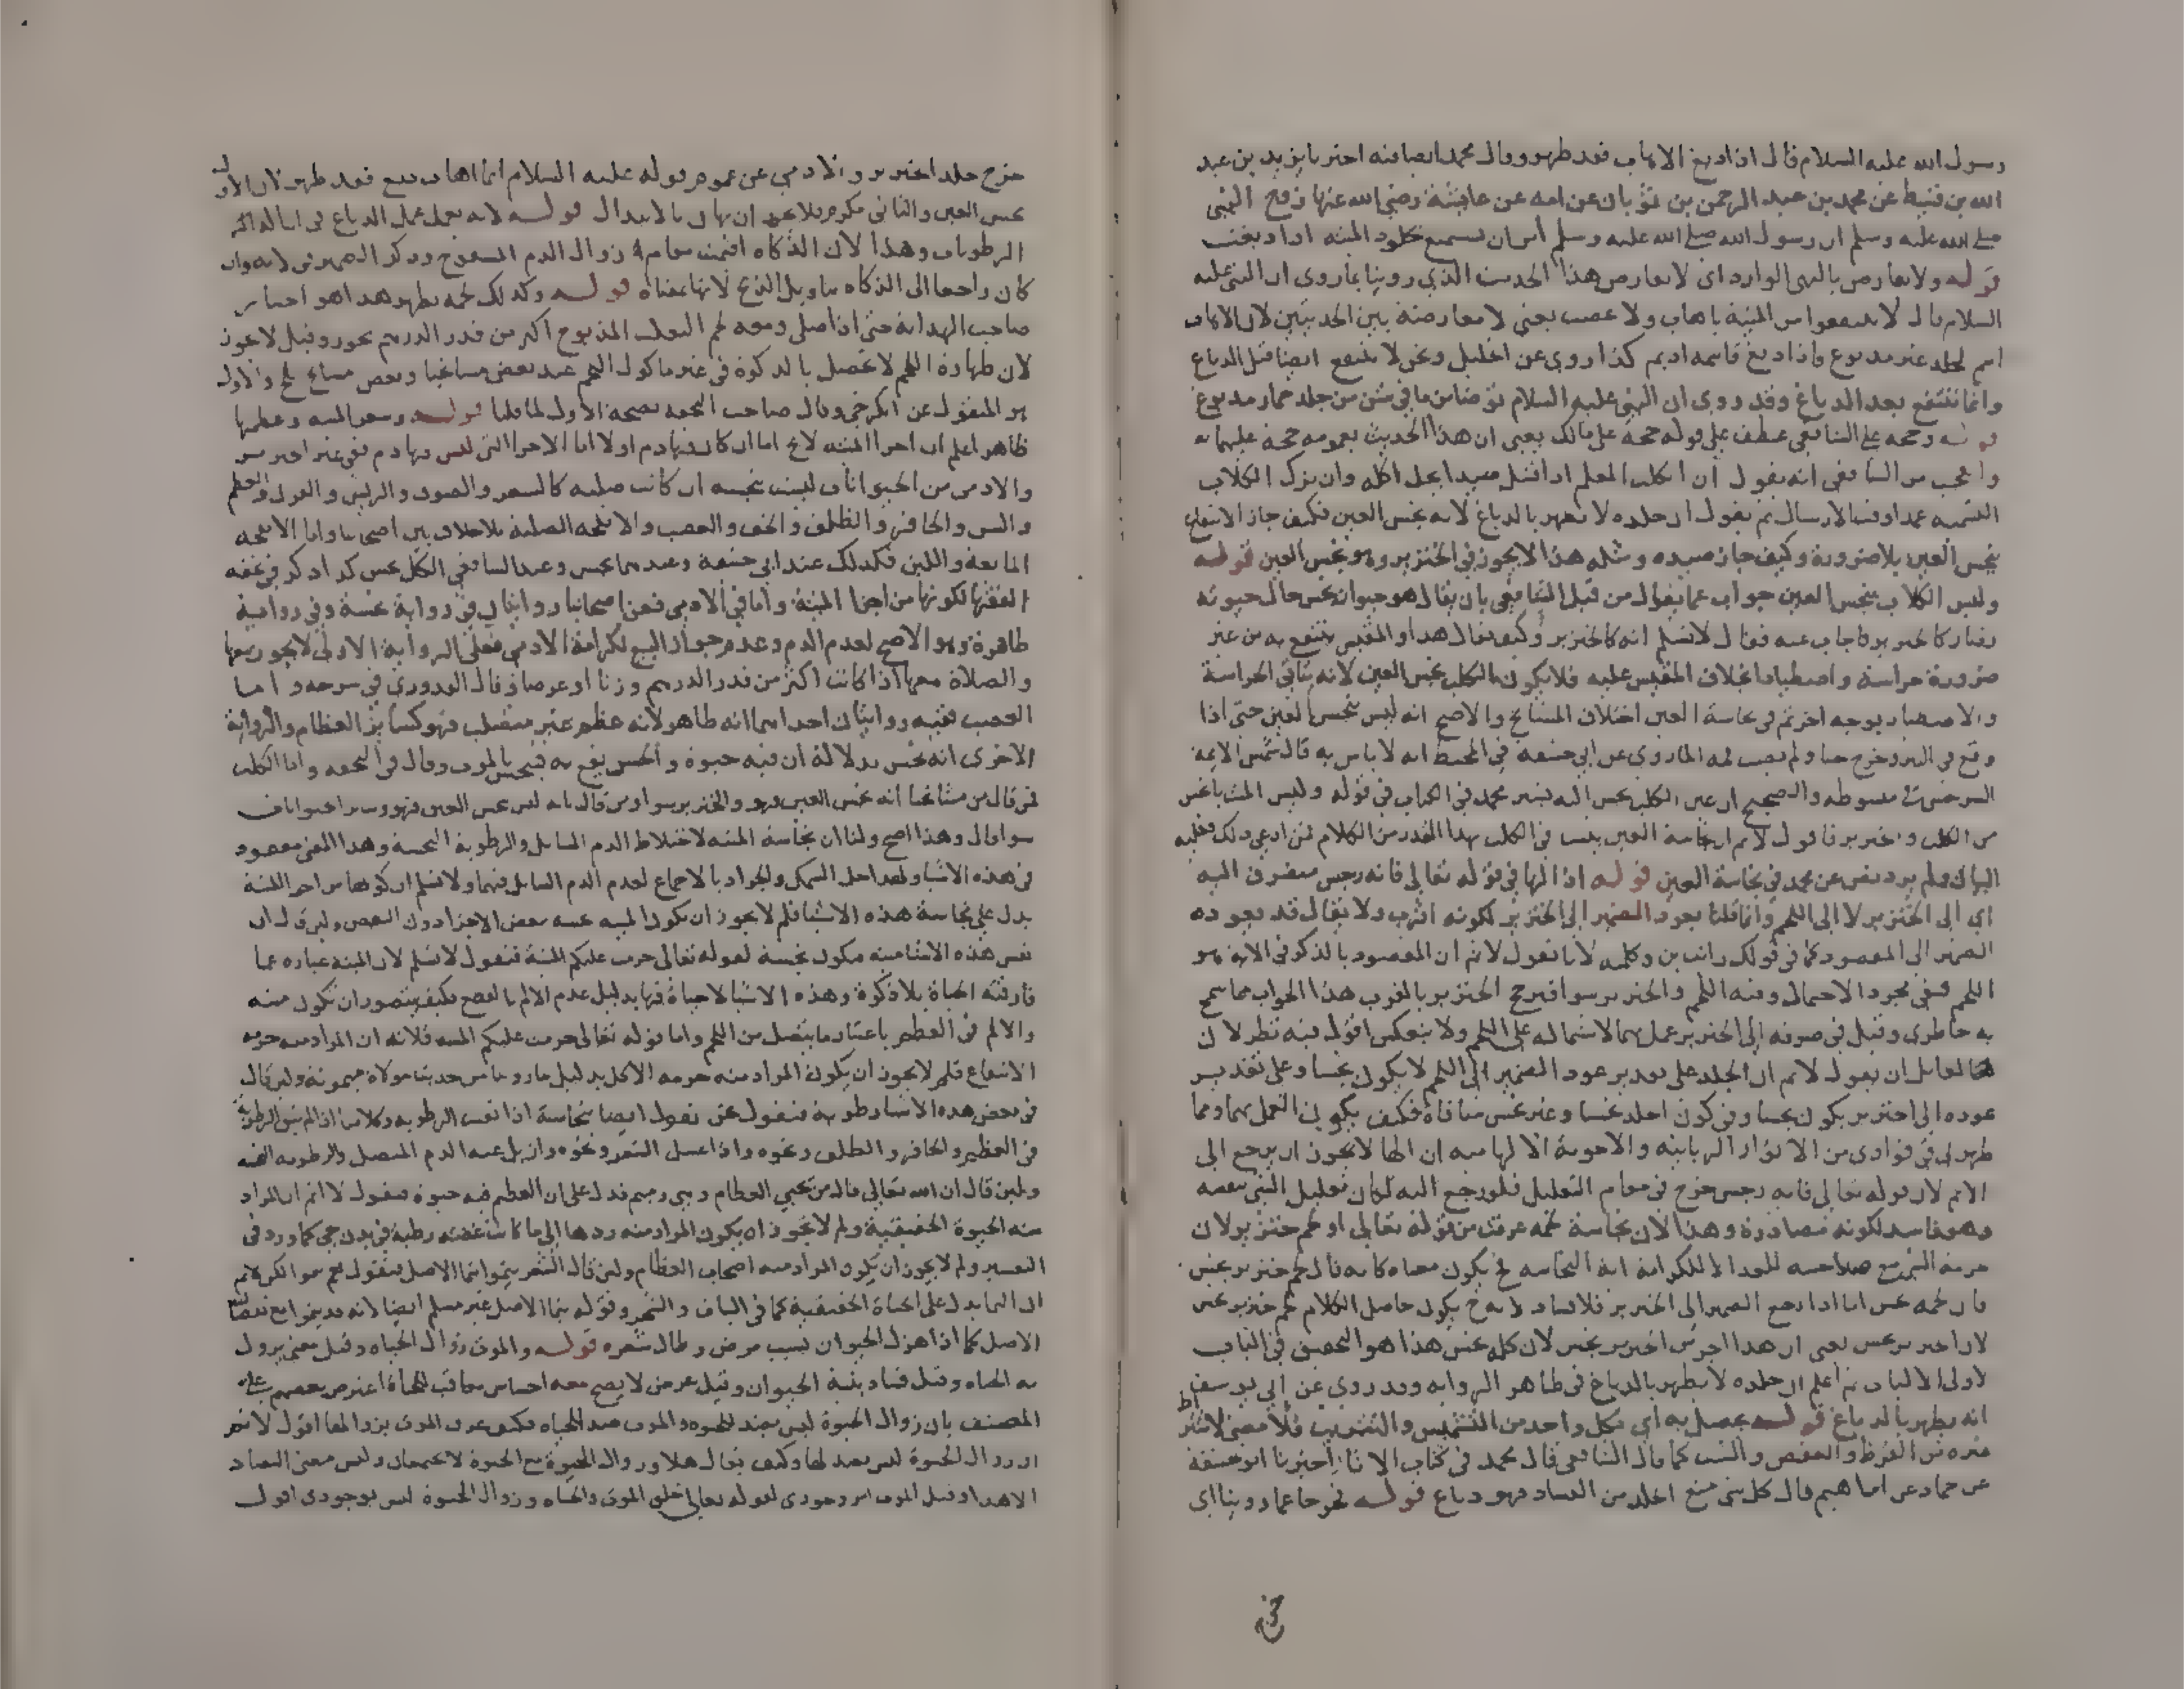 رسول الله عليه السلام قال اذا دبغ الاهاب فقد طهر وقال محمد ايضا فيه اخبرنا يزيد بن عبد
الله بن قسيط عن محمد بن عبد الرحمن بن ثوبان عن امه عن عايشة رضي الله عنها زوج النبي
صلى الله عليه وسلم ان رسول الله صلى الله عليه وسلم امر ان يستمتع بجلود الميتة اذا دبغت
قوله ولا يعارض بالنهى الوارد اى لا يعارض هذا الحديث الذي روينا بما روى ان النبي عليه
السلام قال لا تنتفعوا من الميتة باهاب ولا عصب يعني لا معارضة بين الحديثين لان الاهاب
اسم لجلد غير مدبوغ فاذا دبغ فاسمه اديم كذا روي عن الخليل ونحن لا ننتفع ايضا قبل الدباغ
وانما ننتفع بعد الدباغ وقد روى ان النبي عليه السلام توضا من ما في شن من جلد حمار مدبوغ
قوله وحجة على الشافعي عطف على قوله حجة على مالك يعنى ان هذا الحديث بعمومه حجة عليهما
والعجب من الشافعى انه يقول ان الكلب المعلم اذا قتل صيدا يحل اكله وان ترك الكلاب
التسمية عمدا وقت الارسال ثم يقول ان جلده لا يطهر بالدباغ لانه نجس العين فكيف جاز الانتفاع
بنجس العين بلا ضرورة وكيف جاز صيده ومثله هذا لا يجوز في الخنزير وهو نجس العين قوله
وليس الكلاب بنجس العين جواب عما يقال من قبل الشافعى بان يقال هو حيوان نجس حال حيوته
فصار كالخنزير فاجاب عنه فقال لا نسلم انه كالخنزير وكيف يقال هذا والمقيس ينتفع به من غير
ضرورة حراسة واصطيادا بخلاف المقيس عليه فلا يكون الكلب نجس العين لانه ينافي الحراسة
والاصطياد بوجه اخر ثم في نجاسة العين اختلاف المشايخ والاصح انه ليس بنجس العين حتى اذا
وقع في البير وخرج حيا ولم يصب فمه الما روي عن ابي حنيفة في المحيط انه لا باس به قال شمس الايمة
السرخسى في مبسوطه والصحيح ان عين الكلب نجس اليه يشير محمد في الكتاب في قوله وليس الميت بانجس
من الكلب والخنزير فاقول لا نم ان نجاسة العين يثبت في الكلب بهذا القدر من الكلام فمن ادعى ذلك فعليه
البيان ولم يرد نص عن محمد في نجاسة العين قوله اذ الها في قوله تعالى فانه رجس منصرف اليه
اي الى الخنزير لا الى اللحم وانما قلنا بعود الضمير الى الخنزير لكونه اقرب ولا يقال قد يعود
الضمير الى المقصود كما في قولك رايت ابن زيد وكلمته لانا نقول لا نم ان المقصود بالذكر في الاية هو
اللحم فبقى مجرد الاحتمال وفيه اللحم والخنزير سوا فيرجح الخنزير بالقرب هذا الجواب مما سمح
به خاطري وقيل في صرفه الى الخنزير عمل بهما لاشتماله على اللحم ولا ينعكس اقول فيه نظر لان
لقايل ان يقول لا نم ان الجلد على تقدير عود الضمير الى اللحم لا يكون نجسا وعلى تقدير
عوده الى الخنزير يكون نجسا وفي كون الجلد نجسا وغير نجس منافاة فكيف يكون العمل بهما ومما
ظهر لى في فوادى من الانوار الربانية والاجوبة الالهامية ان الها لا يجوز ان يرجع الى
اللحم لان قوله تعالى فانه رجس خرج في مقام التعليل فلو رجع اليه لكان تعليل الشي بنفسه
وهو فاسد لكونه مصادرة وهذا لان نجاسة لحمه عرفت من قوله تعالى او لحم خنزير لان
حرمة الشي مع صلاحيته للغذا لا للكرامة اية النجاسة فح يكون معناه كانه قال لحم خنزير نجس
فان لحمه نجس اما اذا رجع الضمير الى الخنزير فلا فساد لانه ح يكون حاصل الكلام لحم خنزير نجس
لان الخنزير نجس يعنى ان هذا الجز من الخنزير نجس لان كله نجس هذا هو التحقيق في الباب
لاولى الالباب ثم اعلم ان جلده لا يطهر بالدباغ في ظاهر الرواية وقد روي عن ابي يوسف
انه يطهر بالدباغ قوله يحصل به اي بكل واحد من التشميس والتتريب فلا معنى لاشتراط
غيره من القرظ والعفص والشب كما قال الشافعى قال محمد في كتاب الاثار اخبرنا ابو حنيفة
عن حماد عن ابراهيم قال كل شي منع الجلد من الفساد فهو دباغ قوله فخرجا عما روينا اى
خرج
خرج جلد الخنزير والادمي عن عموم قوله عليه السلام ايما اهاب دبغ فقد طهر لان الاول
نجس العين والثاني مكرم فلا يجوز ان يهان بالابتذال قوله لانه يعمل عمل الدباغ في ازالة
الرطوبات وهذا لان الذكاة اقيمت مقام زوال الدم المسفوح وذكر الضمير في لانه وان
كان راجعا الى الذكاة بتاويل الذبح لانها بمعناه قوله وكذلك لحمه يطهر هذا هو اختيار
صاحب الهداية حتى اذا صلى ومعه لحم الثعلب المذبوح اكثر من قدر الدرهم يجوز وقيل لا يجوز
لان طهارة اللحم لا تحصل بالذكوة في غير ماكول اللحم عند بعض مشايخنا وبعض مشايخ بلخ والاول
هو المنقول عن الكرخي وقال صاحب التحفة بصحة الاول لما قلنا قوله وشعر الميتة وعظمها
طاهر اعلم ان اجزا الميتة لا يخ اما ان كان فيها دم او لا اما الاجزا التى ليس فيها دم ففي غير الخنزير
والادمي من الحيوانات ليست بنجسة ان كانت صلبة كالشعر والصوف والريش والقرن والعظم
والسن والحافر والظلف والخف والعصب والانفحة الصلبة بلا خلاف بين اصحابنا واما الانفحة
المايعة واللبن فكذلك عند ابي حنيفة وعندهما نجس وعند الشافعي الكل نجس كذا ذكر في تحفة
الفقها لكونها من اجزا الميتة واما في الادمي فعن اصحابنا روايتان في رواية نجسة وفي رواية
طاهرة وهو الاصح لعدم الدم وعدم جواز البيع لكرامة الادمي فعلى الرواية الاولى لا يجوز بيعها
والصلاة معها اذا كانت اكثر من قدر الدرهم وزنا او عرضا وقال القدوري في شرحه واما
العصب ففيه روايتان احداهما انه طاهر لانه عظم غير متصلب فهو كساير العظام والرواية
الاخرى انه نجس بدلالة ان فيه حيوة والحس يقع به فيتنجس بالموت وقال في التحفة واما الكلب
فمن قال من مشايخنا انه نجس العين فهو والخنزير سوا ومن قال انه ليس نجس العين فهو وساير الحيوانات
سوا قال وهذا اصح ولنا ان نجاسة الميتة لاختلاط الدم السايل والرطوبة النجسة وهذا المعنى مفقود
في هذه الاشيا ولهذا حل السمك والجراد بالاجماع لعدم الدم السايل فيهما ولا نسلم ان كونها من اجزا الميتة
يدل على نجاسة هذه الاشيا فلم لا يجوز ان يكون الميتة نجسة بعض الاجزا دون البعض ولين قال ان
نفس هذه الاشيا ميتة فتكون نجسة لقوله تعالى حرمت عليكم الميتة فنقول لا نسلم لان الميتة عبارة عما
فارقته الحياة بلا ذكوة وهذه الاشيا لا حياة فيها بدليل عدم الالم بالقطع فكيف يتصور ان تكون ميتة
والالم في العظم باعتبار ما يتصل من اللحم واما قوله تعالى حرمت عليكم الميتة فلانه ان المراد منه حرمة
الانتفاع فلم لا يجوز ان يكون المراد منه حرمة الاكل بدليل ما روينا من حديث مولاة ميمونة ولين قال
في بعض هذه الاشيا رطوبة فنقول نحن نقول ايضا بنجاسته اذا بقيت الرطوبة وكلامنا اذا لم تبق الرطوبة
في العظم والحافر والظلف ونحوه واذا غسل الشعر ونحوه وازيل عنه الدم المتصل والرطوبة النجسة
ولين قال ان الله تعالى قال من يحيي العظام وهي رميم فدل على ان العظم فيه حيوة فنقول لا نم ان المراد
منه الحيوة الحقيقية ولم لا يجوز ان يكون المراد منه ردها الى ما كانت غضة رطبة في بدن حي كما ورد في
التفسير ولم لا يجوز ان يكون المراد منه اصحاب العظام ولين قال الشعر ينمو بنما الاصل فنقول نعم ينمو لكن لا نم
ان النما يدل على الحياة الحقيقية كما في النبات والشجر وقوله بنما الاصل غير مسلم ايضا لانه قد ينمو مع نقصان
الاصل كما اذا هزل الحيوان بسبب مرض وطال شعره قوله والموت زوال الحياة وقيل معنى يزول
به الحياة وقيل فساد بنية الحيوان وقيل عرض لا يصح معه احساس معاقب للحياة اعترض بعضهم على
المصنف بان زوال الحيوة ليس بضد للحيوة والموت ضد الحياة فكيف يكون الموت زوالها اقول لا نم
ان زوال الحيوة ليس بضد لها وكيف يقال هذا وزوال الحيوة مع الحيوة لا يجتمعان وليس معنى التضاد
الا هذا وقيل الموت امر وجودي لقوله تعالى خلق الموت والحياة وزوال الحيوة ليس بوجودي اقول